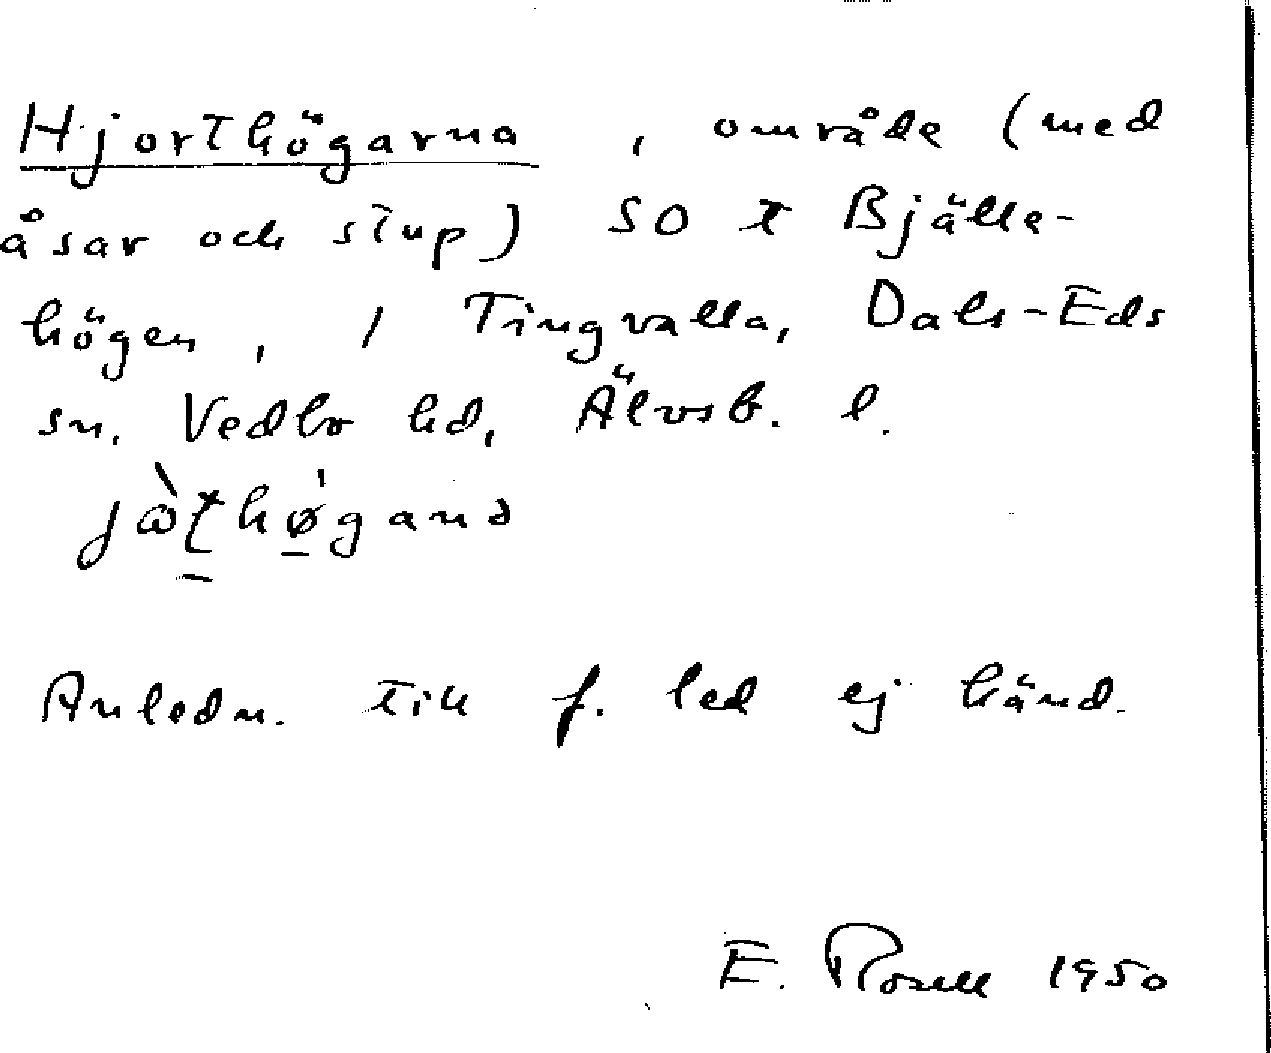 Hjorthögarna, område (med
åsar och stup) SO t Bjälle-
högen, / Tingvalla, Dals-Eds
sn. Vedbo hd, Älvsb. l.
Anledn. till f. led ej känd.
E. Rosell 1950